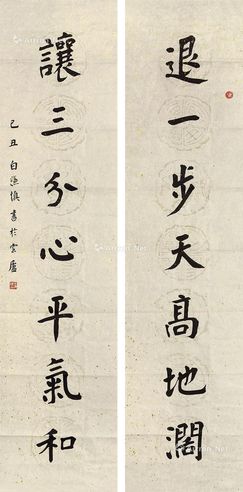 退一步天高地濶
讓三分心平氣和
己丑白謙慎書於雲廬